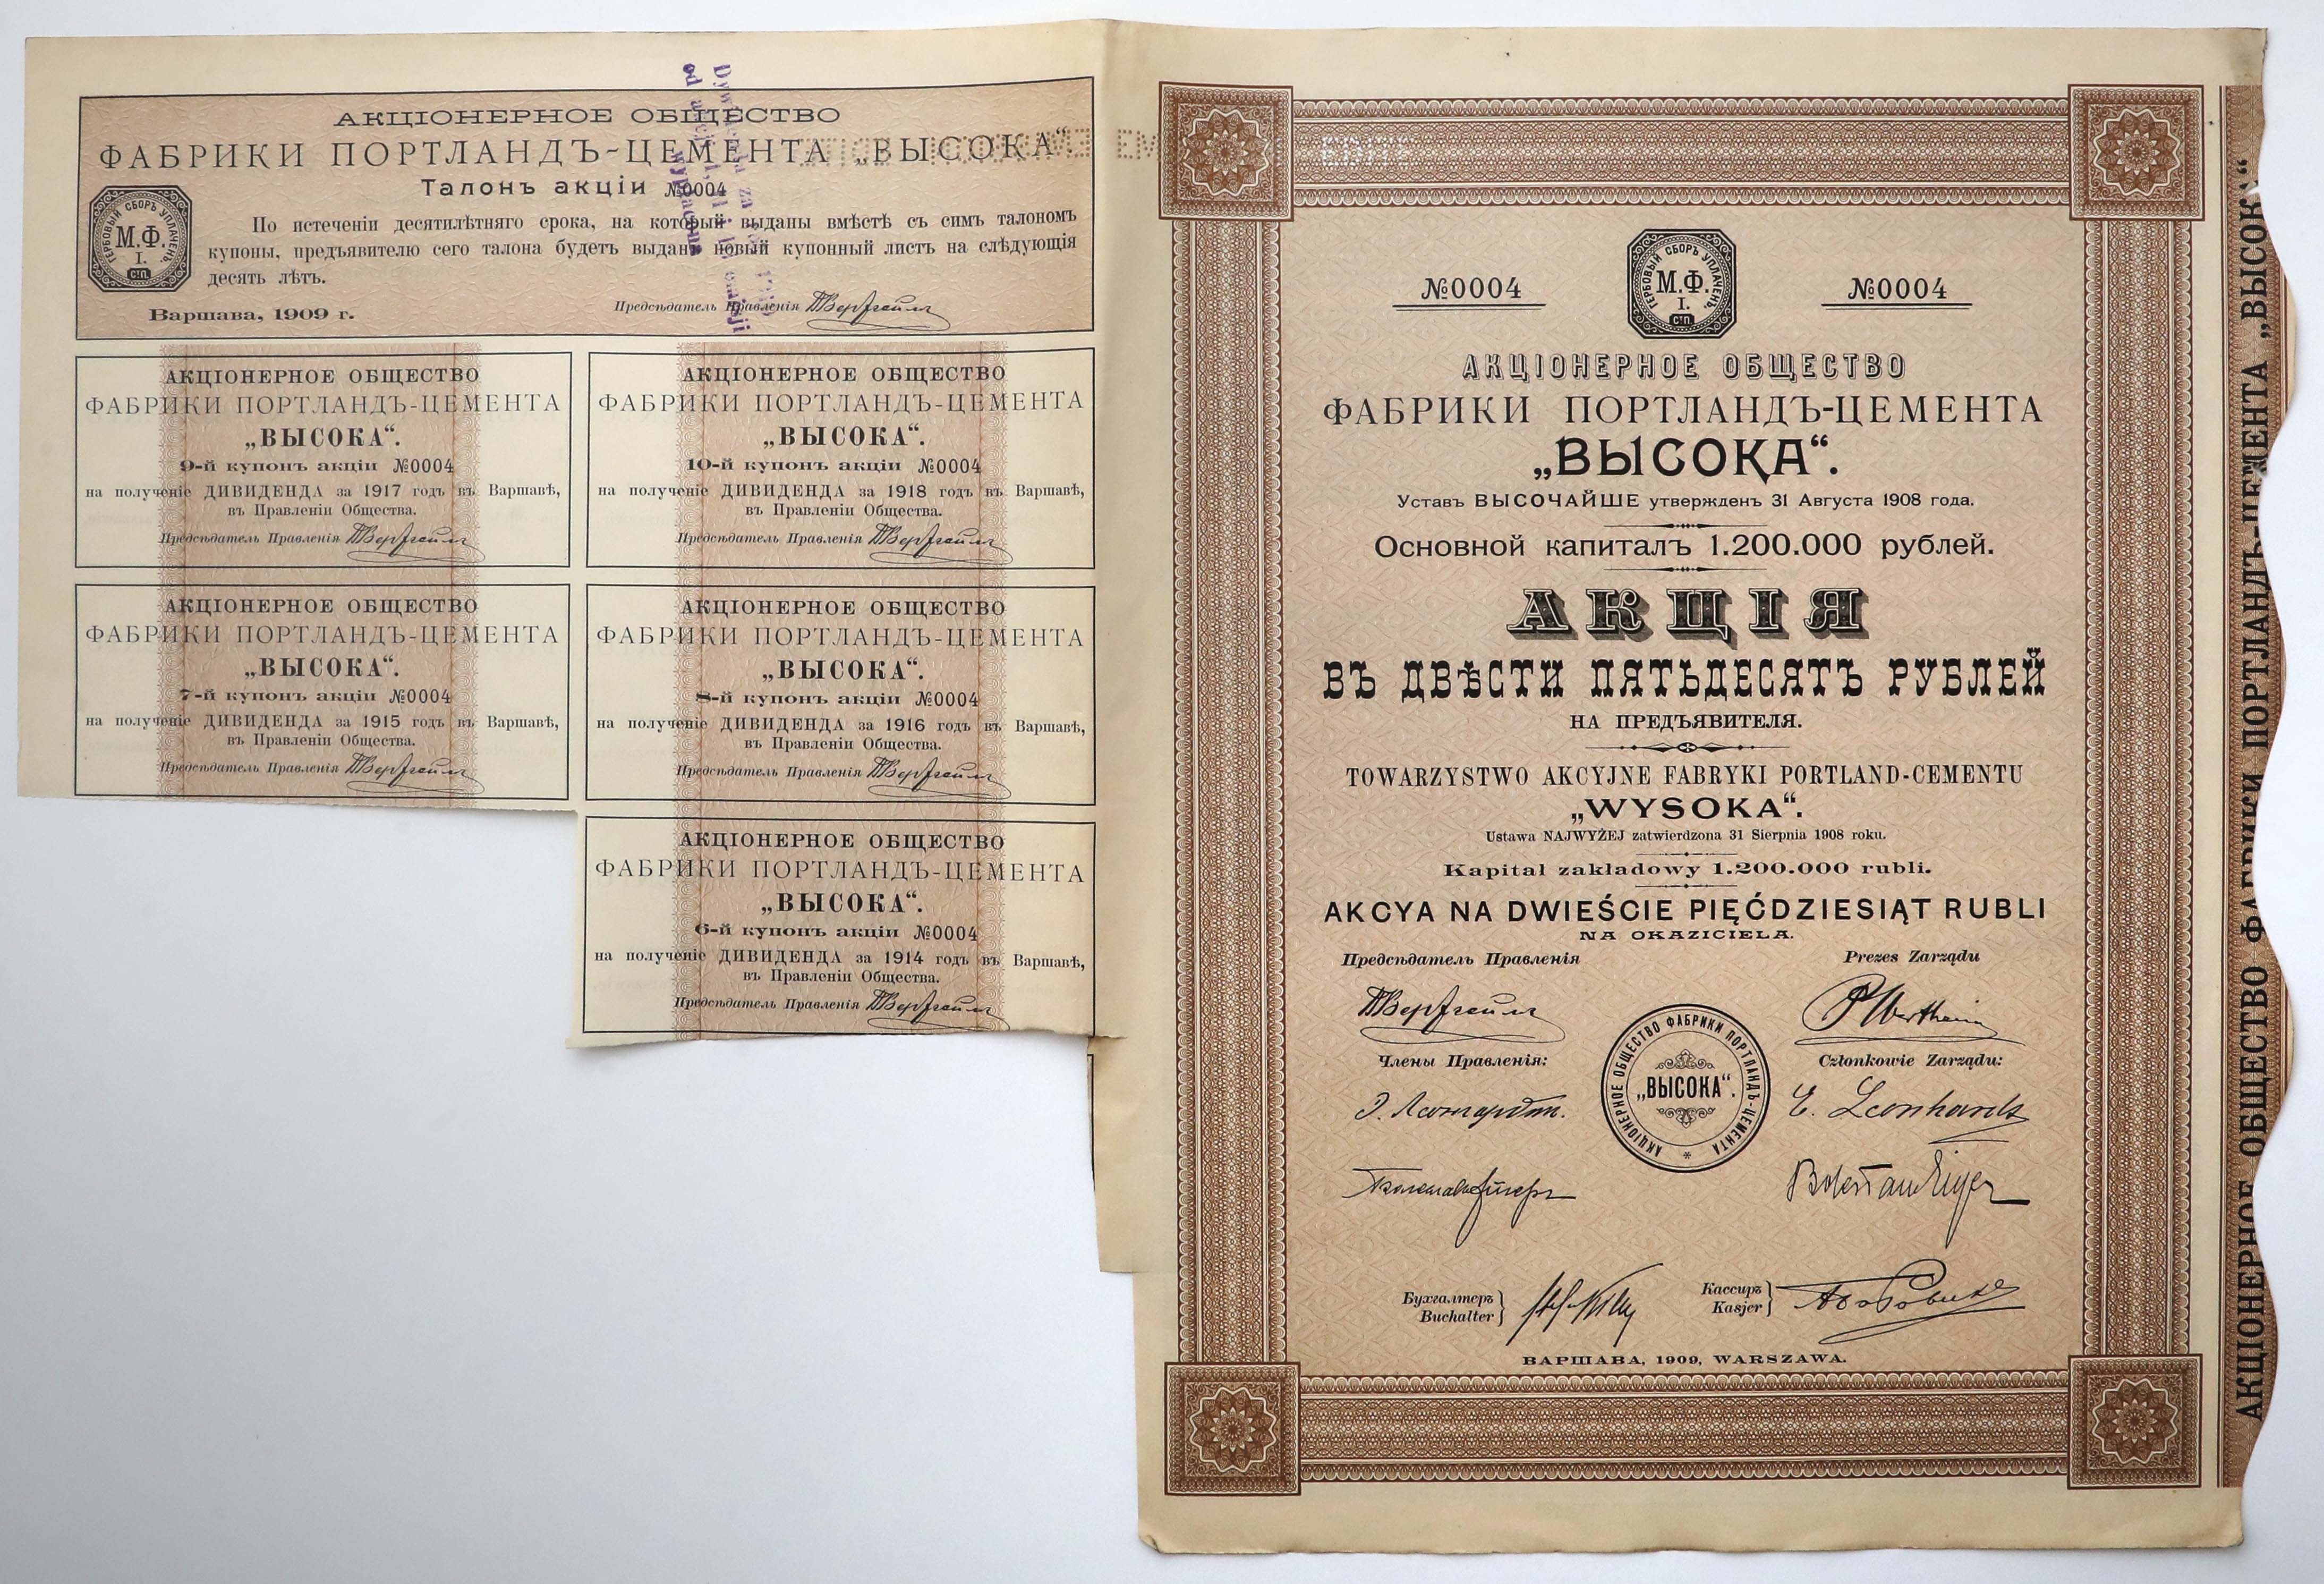 АКЦІОНЕРНОЕ ОБЩЕСТВО
ФАБРИКИ ПОРТЛАНДЪ-ЦЕМЕНТА „ВЫСОКА“.
Талонъ акціи №0004
ГЕРБОВЫЙ СБОРЪ УПЛАЧЕНЪ.
М.Ф.
I.
СТП.
По истеченіи десятилѣтняго срока, на который выданы вмѣстѣ съ симъ талономъ
купоны, предъявителю сего талона будетъ выданъ новый купонный листъ на слѣдующія
десять лѣтъ.
Варшава, 1909 г.
Предсѣдатель Правленія
АКЦІОНЕРНОЕ ОБЩЕСТВО
ФАБРИКИ ПОРТЛАНДЪ-ЦЕМЕНТА
„ВЫСОКА“.
9-й купонъ акціи №0004
на полученіе ДИВИДЕНДА за 1917 годъ въ Варшавѣ,
въ Правленіи Общества.
Предсѣдатель Правленія
АКЦІОНЕРНОЕ ОБЩЕСТВО
ФАБРИКИ ПОРТЛАНДЪ-ЦЕМЕНТА
„ВЫСОКА“.
10-й купонъ акціи №0004
на полученіе ДИВИДЕНДА за 1918 годъ въ Варшавѣ,
въ Правленіи Общества.
Предсѣдатель Правленія
АКЦІОНЕРНОЕ ОБЩЕСТВО
ФАБРИКИ ПОРТЛАНДЪ-ЦЕМЕНТА
„ВЫСОКА“.
7-й купонъ акціи №0004
на полученіе ДИВИДЕНДА за 1915 годъ въ Варшавѣ,
въ Правленіи Общества.
Предсѣдатель Правленія
АКЦІОНЕРНОЕ ОБЩЕСТВО
ФАБРИКИ ПОРТЛАНДЪ-ЦЕМЕНТА
„ВЫСОКА“.
8-й купонъ акціи №0004
на полученіе ДИВИДЕНДА за 1916 годъ въ Варшавѣ,
въ Правленіи Общества.
Предсѣдатель Правленія
АКЦІОНЕРНОЕ ОБЩЕСТВО
ФАБРИКИ ПОРТЛАНДЪ-ЦЕМЕНТА
„ВЫСОКА“.
6-й купонъ акціи №0004
на полученіе ДИВИДЕНДА за 1914 годъ въ Варшавѣ,
въ Правленіи Общества.
Предсѣдатель Правленія
№0004
ГЕРБОВЫЙ СБОРЪ УПЛАЧЕНЪ.
М.Ф.
I.
СТП.
№0004
АКЦІОНЕРНОЕ ОБЩЕСТВО
ФАБРИКИ ПОРТЛАНДЪ-ЦЕМЕНТА
„ВЫСОКА“.
Уставъ ВЫСОЧАЙШЕ утвержденъ 31 Августа 1908 года.
Основной капиталъ 1.200.000 рублей.
АКЦІЯ
ВЪ ДВѢСТИ ПЯТЬДЕСЯТЪ РУБЛЕЙ
НА ПРЕДЪЯВИТЕЛЯ.
TOWARZYSTWO AKCYJNE FABRYKI PORTLAND-CEMENTU
„WYSOKA“.
Ustawa NAJWYŻEJ zatwierdzona 31 Sierpnia 1908 roku.
Kapitał zakładowy 1.200.000 rubli.
AKCYA NA DWIEŚCIE PIĘĆDZIESIĄT RUBLI
NA OKAZICIELA.
Предсѣдатель Правленія
Prezes Zarządu
P Wertheim
Члены Правленія:
Członkowie Zarządu:
АКЦІОНЕРНОЕ ОБЩЕСТВО ФАБРИКИ ПОРТЛАНДЪ-ЦЕМЕНТА
„ВЫСОКА“.
Э. Леонгардтъ.
E. Leonhardt
Болеславъ Эйгеръ
Bolesław Eiger
Бухгалтеръ
Buchalter
Кассиръ
Kasjer
ВАРШАВА, 1909, WARSZAWA.
АКЦІОНЕРНОЕ ОБЩЕСТВО ФАБРИКИ ПОРТЛАНДЪ-ЦЕМЕНТА „ВЫСОКА“